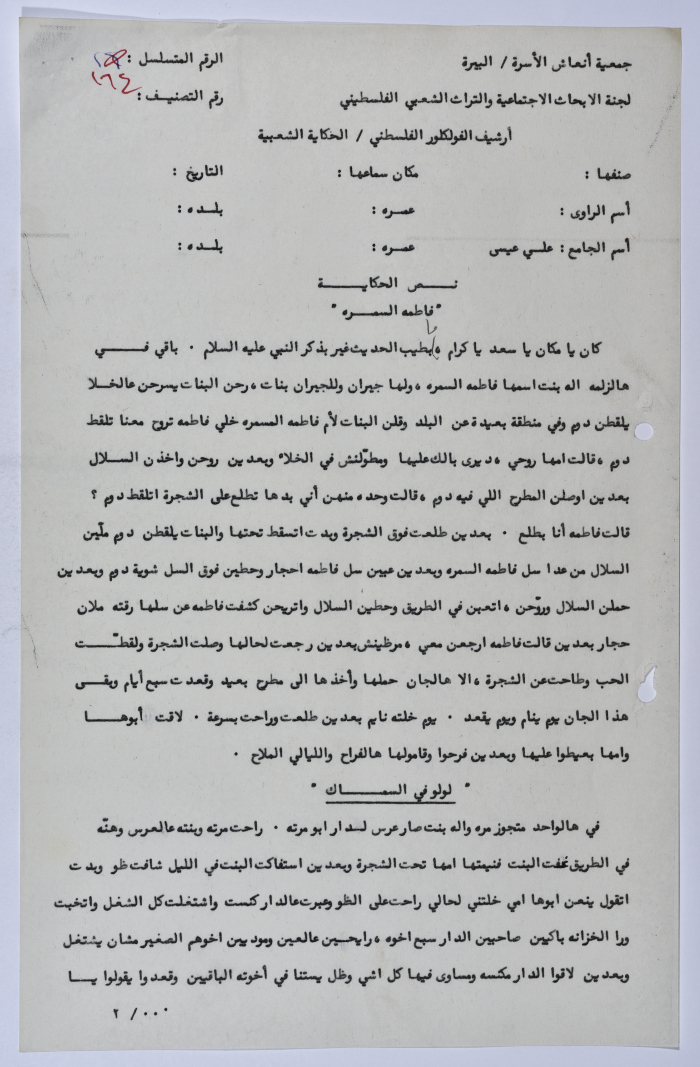 جمعية أنعاش الأسرة / البيرة الرقم المتسلسل :
لجنة الابحاث الاجتماعية والتراث الشعبي الفلسطيني رقم التصنيف : ١٦٤
أرشيف الفولكلور الفلسطني / الحكاية الشعبية
صنفها : مكان سماعها : التاريخ :
أسم الراوى : عمره : بلده :
أسم الجامع : علي عيسى عمره : بلده :
نص الحكاية
" فاطمه السمره "
كان يا مكان يا سعد يا كرام ، بطيب الحديث غير بذكر النبي عليه السلام ٠ باقي في
هالزلمه اله بنت اسمها فاطمه السمره ، ولها جيران وللجيران بنات ، رحن البنات يسرحن عالخلا
يلقطن دوم وفي منطقة بعيدة عن البلد وقلن البنات لأم فاطمه المسمره خلي فاطمه تروح معنا تلقط
دوم ، قالت امها روحي ، ديرى بالك عليها ومطوّلنش في الخلا٠ وبعدين روحن واخذن السلال
بعدين اوصلن المطرح اللي فيه دوم ، قالت وحده منهن أني بدها تطلع على الشجرة اتلقط دوم ؟
قالت فاطمه أنا بطلع ٠ بعدين طلعت فوق الشجرة وبدت اتسقط تحتها والبنات يلقطن دوم ملّين
السلال من عدا سل فاطمه السمره وبعدين عبين سل فاطمه احجار وحطين فوق السل شوية دوم وبعدين
حملن السلال وروّحن ، اتعبن في الطريق وحطين السلال واتريحن كشفت فاطمه عن سلها رقته ملان
حجار بعدين قالت فاطمه ارجعن معي ، مرظينش بعدين رجعت لحالها وصلت الشجرة ولقطّت
الحب وطاحت عن الشجرة ، الا هالجان حملها وأخذها الى مطرح بعيد وقعدت سبع أيام وبقى
هذا الجان يوم ينام ويوم يقعد ٠ يوم خلته نايم بعدين طلعت وراحت بسرعة ٠ لاقت أبوها
وامها بعيطوا عليها وبعدين فرحوا وقامولها هالفراح والليالي الملاح ٠
" لولو في السماك "
في هالواحد متجوز مره واله بنت صار عرس لدار ابو مرته ٠ راحت مرته وبنته عالعرس وهنّه
في الطريق غفت البنت فنيمتها امها تحت الشجرة وبعدين استفاكت البنت في الليل شافت ظو وبدت
اتقول ينعن ابوها امي خلتني لحالي راحت على الظو وعبرت عالدار كنست واشتغلت كل الشغل واتخبت
ورا الخزانه باكيين صاحبين الدار سبع اخوه ، رايحين عالعين وموديين اخوهم الصغير مشان يشتغل
وبعدين لاقوا الدار مكنسه ومساوى فيها كل اشي وظل يستنا في أخوته الباقيين وقعدوا يقولوا يا
٠٠٠ / ٢